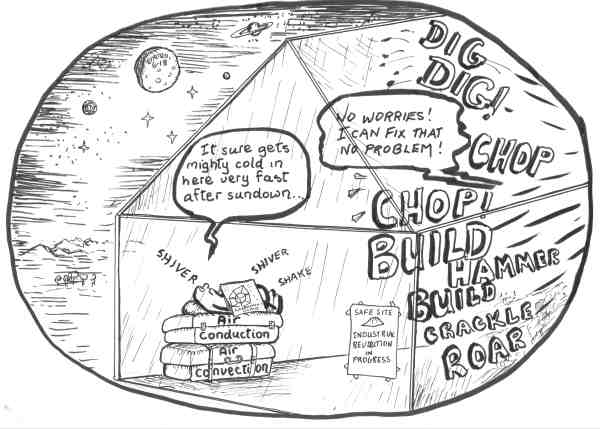 DIG
DIG!
NO WORRIES!
I CAN FIX THAT
NO PROBLEM!
CHOP
It sure gets
mighty cold in
here very fast
after sundown...
CHOP!
BUILD
HAMMER
BUILD
CRACKLE
ROAR
SHIVER
SHIVER
SHAKE
Air
Conduction
Air
Convection
SAFE SITE
INDUSTRIAL
REVOLUTION
IN
PROGRESS